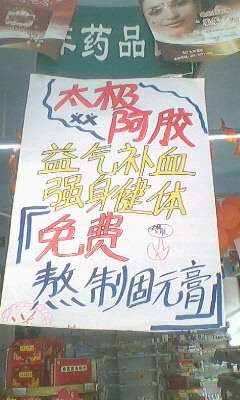 药品
太极
xx
阿胶
益气补血
强身健体
『免费
熬制固元膏』